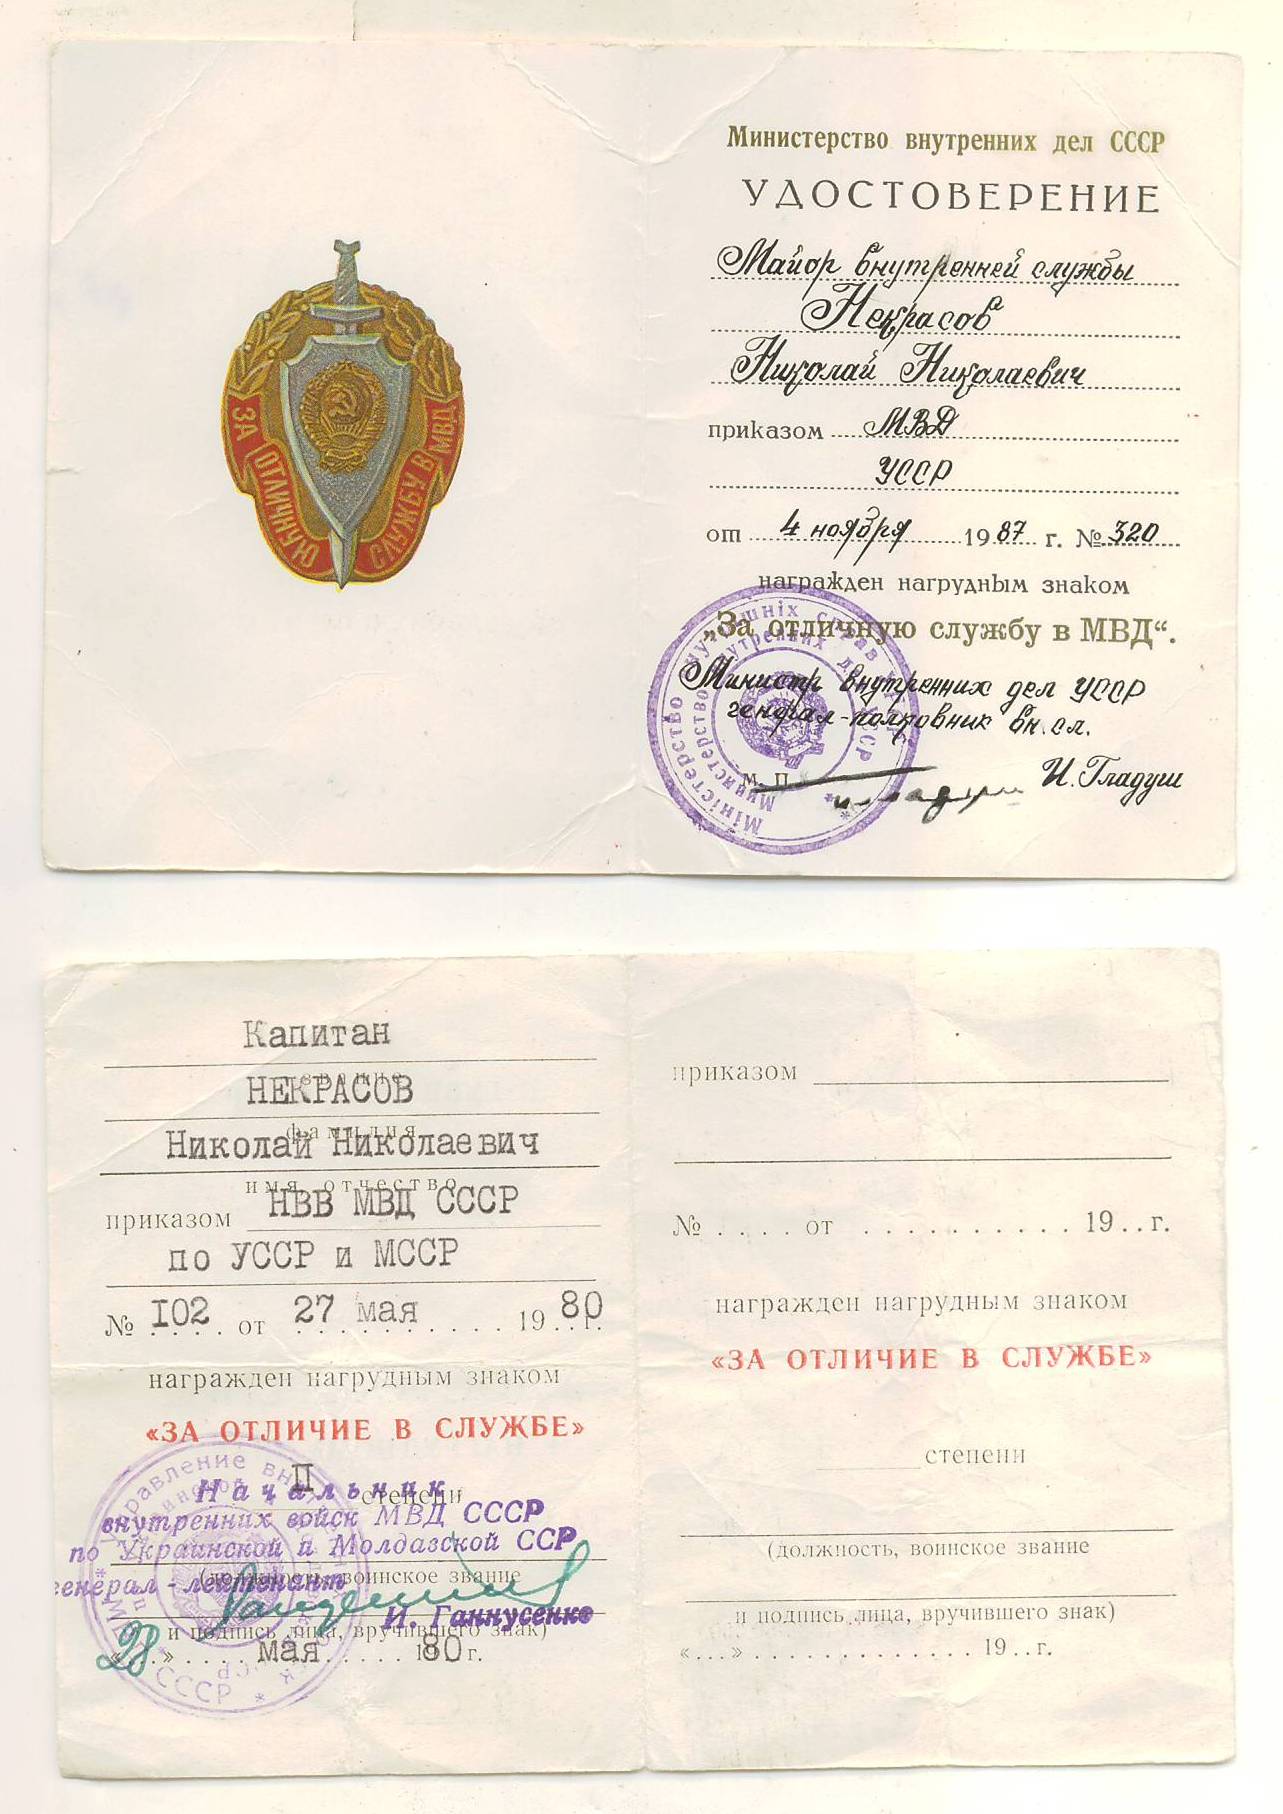 ЗА ОТЛИЧНУЮ СЛУЖБУ В МВД
Министерство внутренних дел СССР
УДОСТОВЕРЕНИЕ
Майор внутренней службы
Некрасов
Николай Николаевич
приказом МВД
УССР
от 4 ноября 1987 г. № 320
награжден нагрудным знаком
„За отличную службу в МВД“.
Министр внутренних дел УССР
генерал-полковник вн. сл.
м. п.
И. Гладуш
Міністерство внутрішніх справ
Министерство внутренних дел УССР
Капитан
звание
НЕКРАСОВ
фамилия
Николай Николаевич
имя отчество
приказом НВВ МВД СССР
по УССР и МССР
№ 102 от 27 мая 1980 г.
награжден нагрудным знаком
«ЗА ОТЛИЧИЕ В СЛУЖБЕ»
II степени
Начальник
внутренних войск МВД СССР
по Украинской и Молдавской ССР
(должность, воинское звание
генерал-лейтенант
И. Ганнусенко
и подпись лица, вручившего знак)
«28» мая 1980 г.
Управление
СССР
приказом
№ .... от ........... 19..г.
награжден нагрудным знаком
«ЗА ОТЛИЧИЕ В СЛУЖБЕ»
степени
(должность, воинское звание
и подпись лица, вручившего знак)
«...» ............. 19..г.